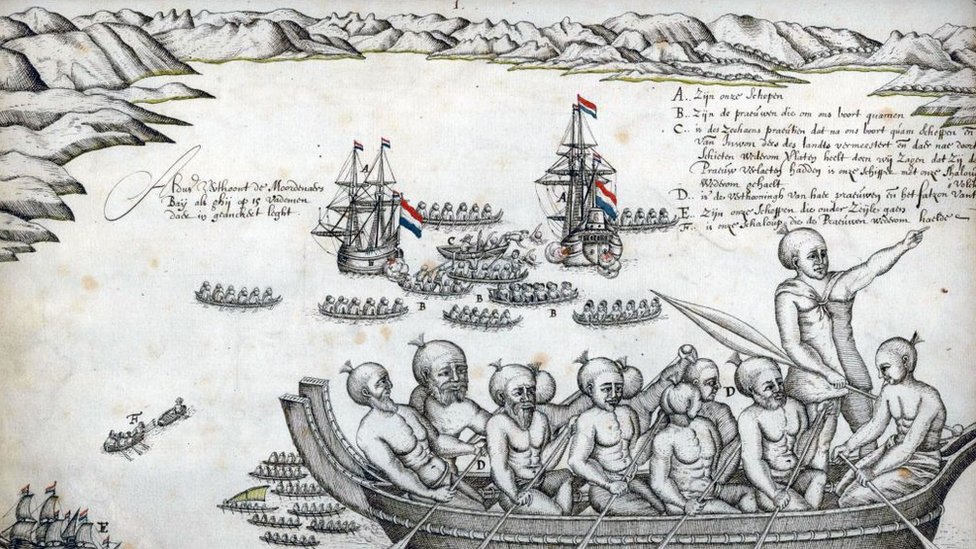 1
A.. Zijn onze Schepen
B.. Zijn de praeuwen die om ons boort quamen
C.. is des Zeehaens praeutien dat na ons boort quam Scheppen en
van Inwon ders des landts vermeestert en daer nae door
Schieten wederom Verlaten heeft doen wij Zagen dat zij de
Praeuw Verlaten hadden is onze Schipper met onze Chaloup
Wederom gehaelt
D.. is de Verthooningh van haer praeuwen en het fatzon van 't Volck
E.. Zijn onze Scheepen die onder Zeijle gaen
F.. is onze Schaloup die de Praeuwen wederom haelde
Aldus Verthoont de Moordenaers
Baij als ghij op 15 Vademen
daer in geanckert leght
A
A
C
B
B
B
D
D
F
E